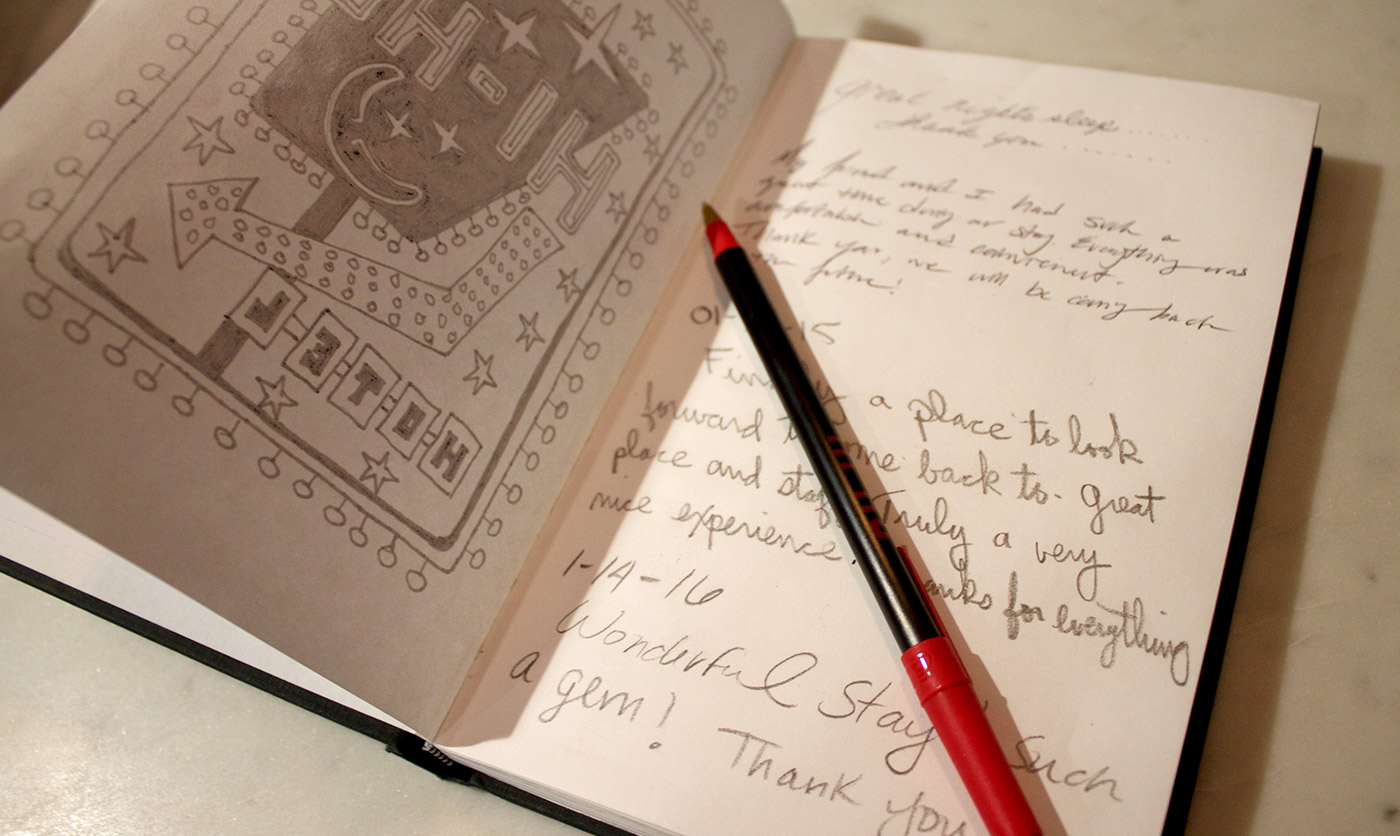 HOTEL
Great nights sleep......
thank you........
My friend and I had such a
great time during our stay. Everything was
comfortable and convenient.
Thank you, we will be coming back
future!
15
a place to look
forward back to. great
place and Truly a very
nice experience.
for everything
1-14-16
Wonderful Stay Such
a gem! Thank you